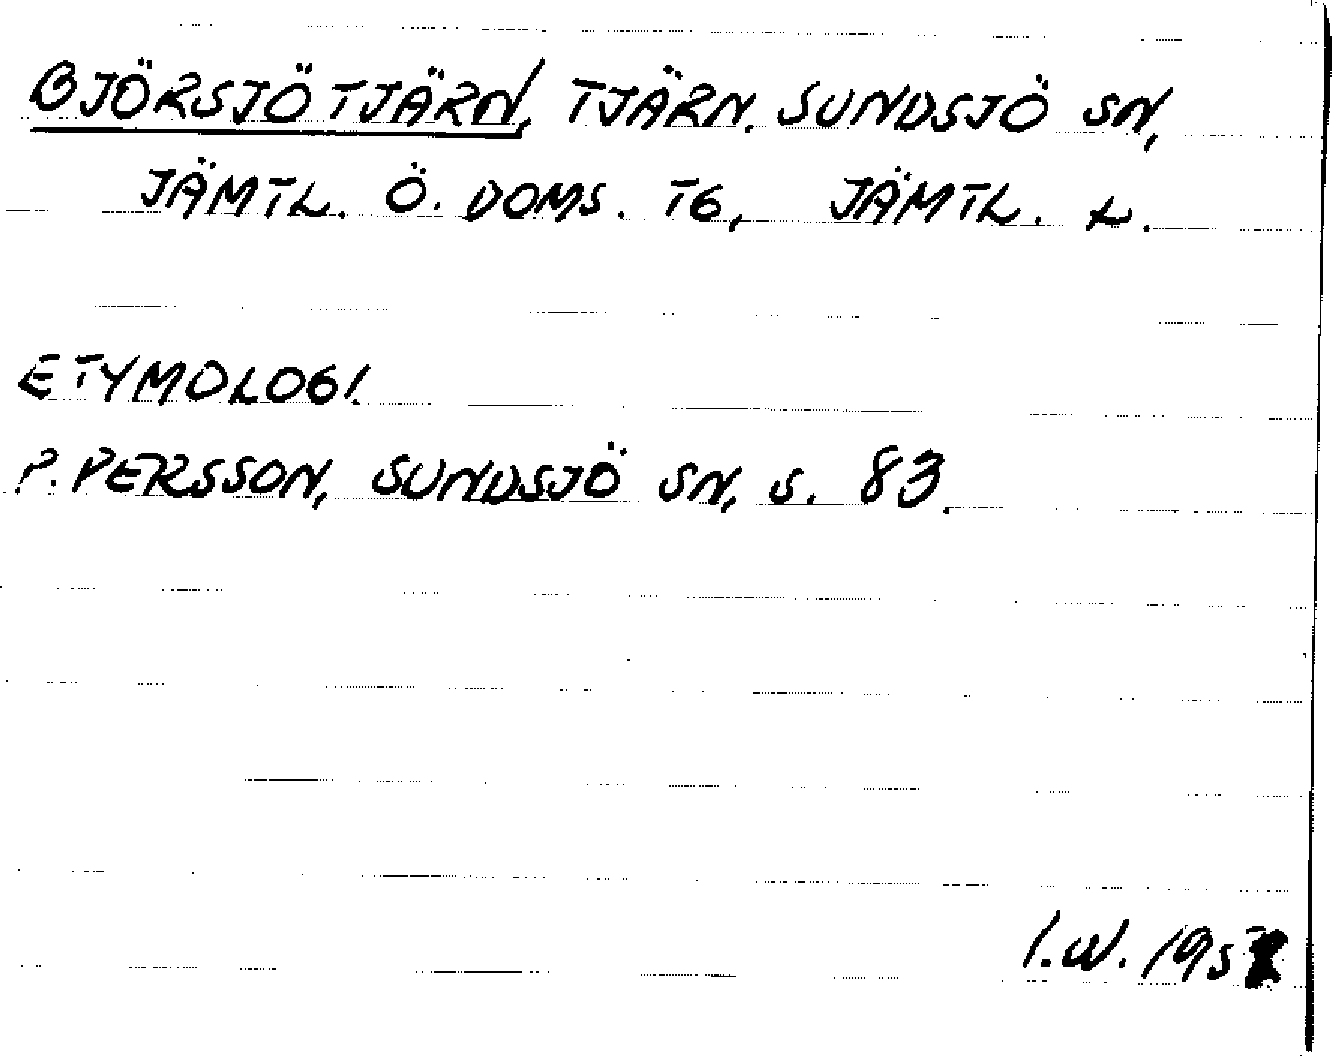 BJÖRSJÖTJÄRN, TJÄRN. SUNDSJÖ SN,
JÄMTL. Ö. DOMS. TG, JÄMTL. L.
ETYMOLOGI.
P. PERSSON, SUNDSJÖ SN, S. 83.
I.W.